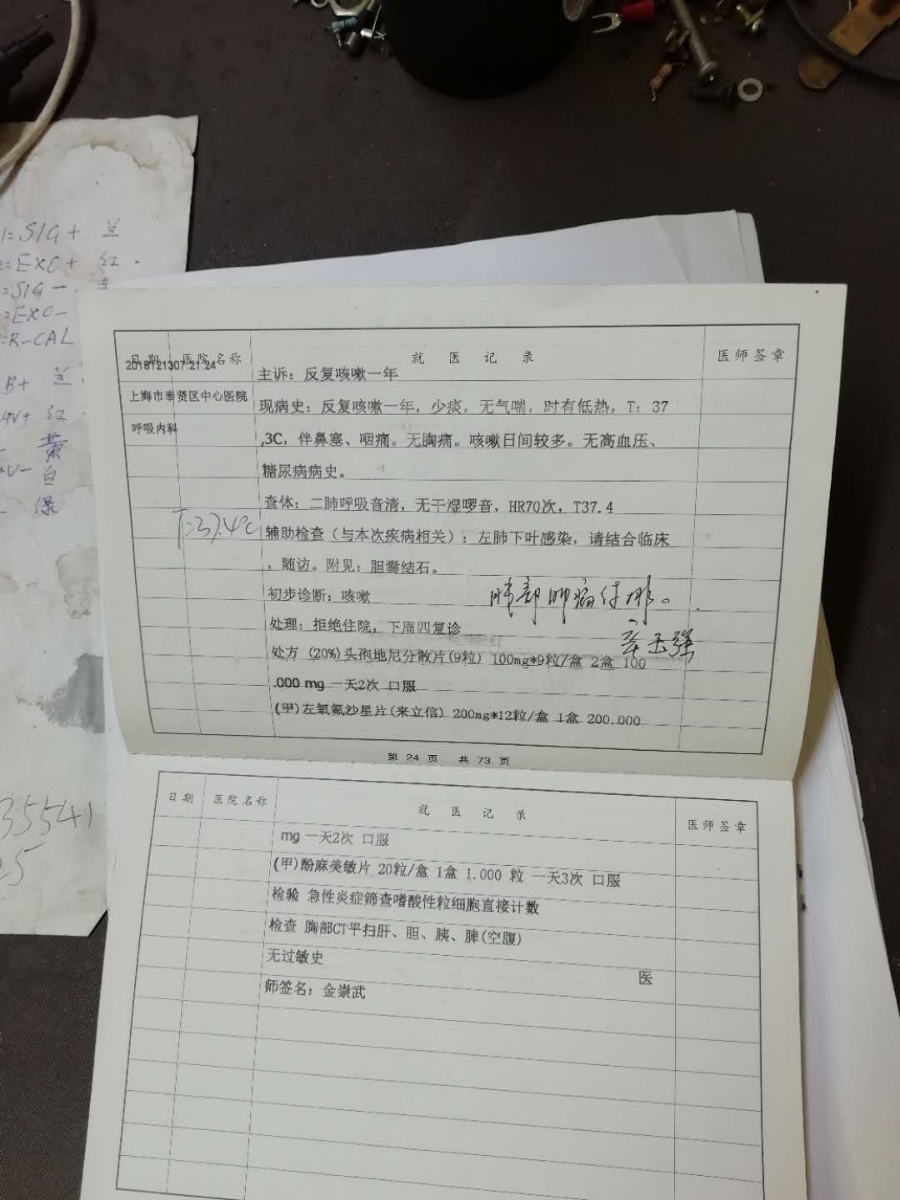 1=SIG+ 兰
=EXC+ 红.
=SIG-
=EXC-
=R-CAL
B+ 兰
V+ 红
黄
V- 白
绿
35541
25
日期 医院名称 就医记录 医师签章
2018121307:21:24
主诉：反复咳嗽一年
上海市奉贤区中心医院
现病史：反复咳嗽一年，少痰，无气喘，时有低热，T：37
呼吸内科
,3C，伴鼻塞、咽痛。无胸痛。咳嗽日间较多。无高血压、
糖尿病病史。
查体：二肺呼吸音清，无干湿啰音，HR70次，T37.4
T=37.4℃
辅助检查（与本次疾病相关）：左肺下叶感染，请结合临床
，随访。附见：胆囊结石。
初步诊断：咳嗽
肺部肿瘤待排。
处理：拒绝住院，下周四复诊
处方 (20%)头孢地尼分散片(9粒) 100mg*9粒/盒 2盒 100
.000 mg 一天2次 口服
(甲)左氧氟沙星片(来立信) 200mg*12粒/盒 1盒 200.000
第 24 页 共 73 页
日期 医院名称 就医记录 医师签章
mg 一天2次 口服
(甲)酚麻美敏片 20粒/盒 1盒 1.000 粒 一天3次 口服
检验 急性炎症筛查嗜酸性粒细胞直接计数
检查 胸部CT平扫肝、胆、胰、脾(空腹)
无过敏史 医
师签名：金崇武